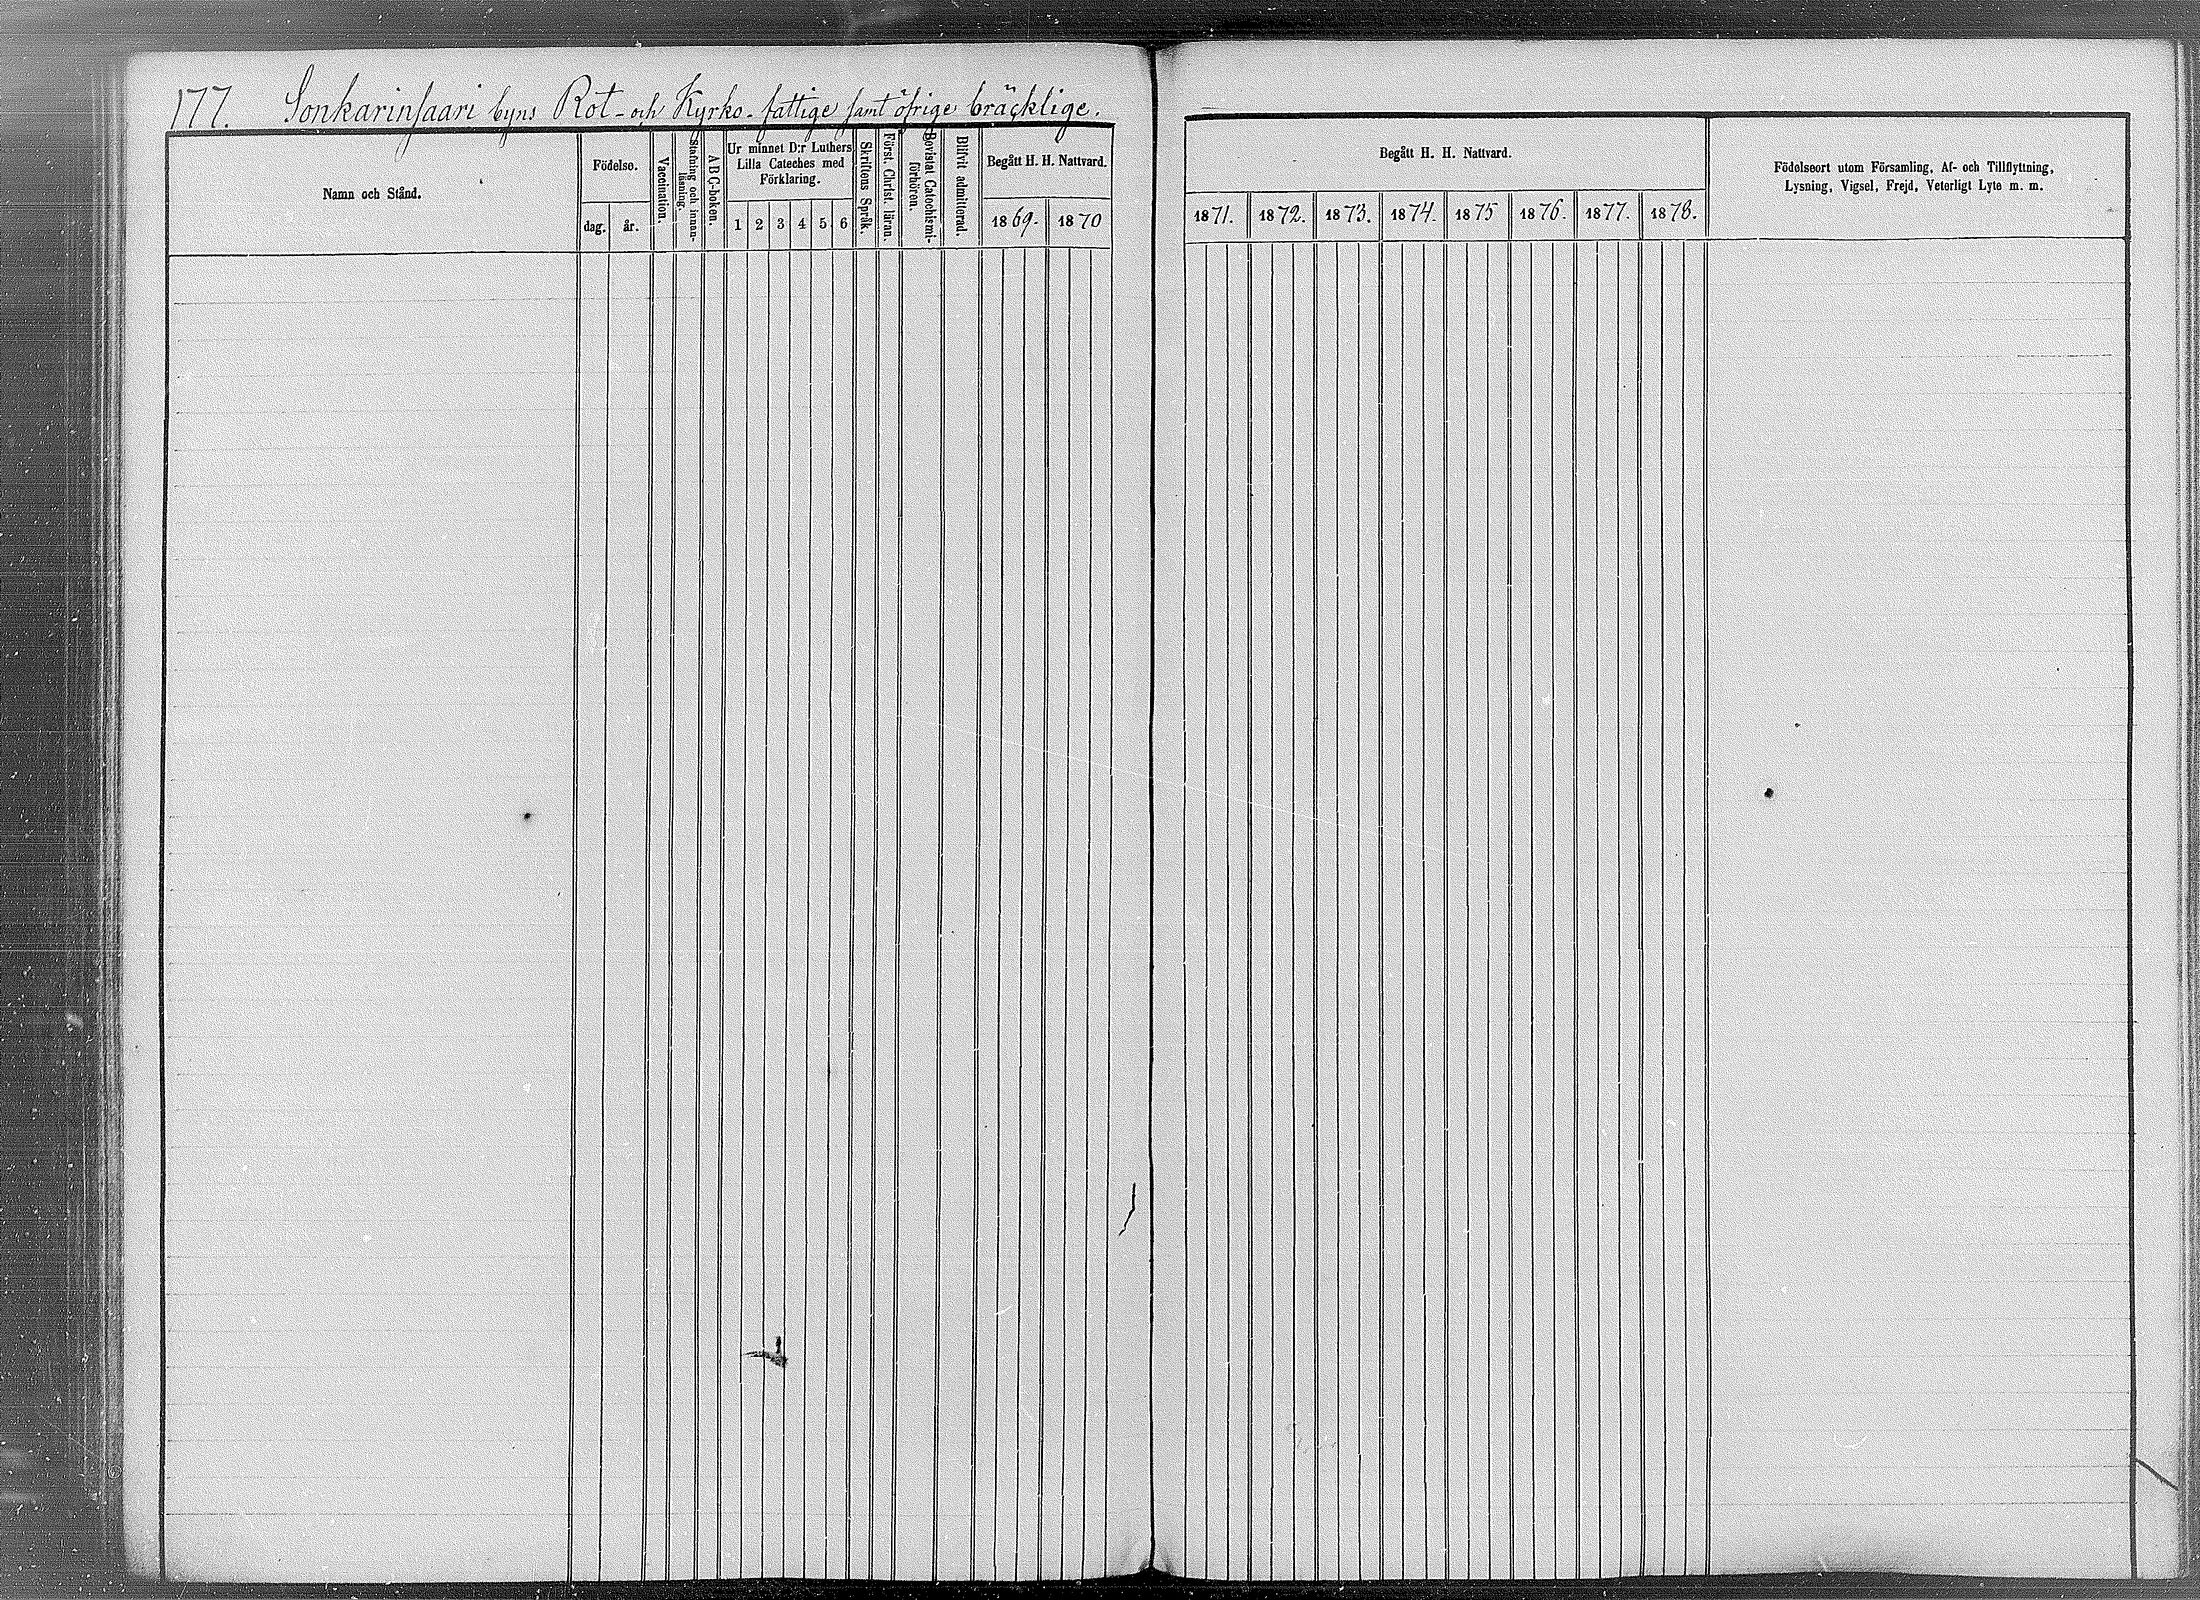 177. Sonkarinsaari byns Rot- och Kyrko-fattige samt öfrige bräcklige.
Namn och Stånd.
Födelse.
dag.
år.
Vaccination.
Stafning och innan-
läsning.
ABC-boken.
Ur minnet D:r Luthers
Lilla Cateches med
Förklaring.
1 2 3 4 5 6
Skriftens Språk.
Först. Christ. läran.
Bevistat Catechismi-
förhören.
Blifvit admitterad.
Begått H. H. Nattvard.
1869. 1870
Begått H. H. Nattvard.
1871. 1872. 1873. 1874. 1875 1876. 1877. 1878.
Födelseort utom Församling, Af- och Tillflyttning,
Lysning, Vigsel, Frejd, Veterligt Lyte m. m.